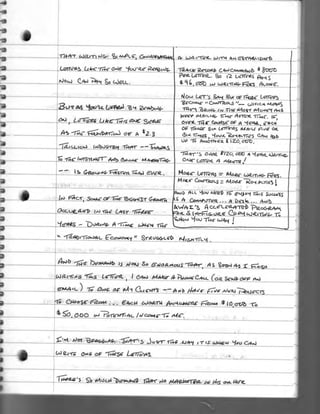 THAT WRITING SIMPLE, CONVERSATIONAL
LETTERS LIKE THE ONE YOU'RE READING
NOW CAN PAY SO WELL.
BUT AS YOU'LL LEARN BY READING
ON, LETTERS LIKE THIS ONE SERVE
AS THE FOUNDATION OF A $2.3
TRILLION INDUSTRY THAT -- THANKS
TO THE INTERNET AND ONLINE MARKETING
-- IS GROWING FASTER THAN EVER.
IN FACT, SOME OF THE BIGGEST GROWTH
OCCURRED IN THE LAST THREE
YEARS - DURING A TIME WHEN THE
"TRADITIONAL ECONOMY" STRUGGLED MIGHTILY.
A WRITER WITH AN ESTABLISHED
TRACK RECORD CAN COMMAND $8000
PER LETTER. SO 12 LETTERS PAYS
$96,000 IN WRITING FEES ALONE.
NOW LET'S SAY SIX OF THOSE LETTERS
BECOME "CONTROLS" -
THEY BRING IN THE MOST MONEY AND
KEEP MAILING TIME AFTER TIME. IF,
OVER THE COURSE OF A YEAR, EACH
OF THOSE SIX LETTERS MAILS FIVE OR
SIX TIMES, YOUR ROYALTIES CAN ADD
UP TO ANOTHER $120,000.
THAT'S OVER $120,000 A YEAR, WRITING
ONE LETTER A MONTH!
MORE LETTERS = MORE WRITING FEES.
MORE CONTROLS = MORE ROYALTIES!
AND ALL YOU NEED TO ENJOY THIS SUCCESS
IS A COMPUTER... A DESK... AND
AWAI'S ACCELERATED PROGRAM
FOR SIX-FIGURE COPYWRITING TO
SHOW YOU THE WAY!
AND THE DEMAND IS NOW SO ENORMOUS THAT, AS SOON AS I FINISH
WRITING THIS LETTER, I CAN MAKE A PHONE CALL (OR SEND OFF AN
EMAIL) TO ONE OF MY CLIENTS - AND HAVE FIVE NEW PROJECTS
TO CHOOSE FROM... EACH WORTH ANYWHERE FROM $10,000 TO
$50,000 IN POTENTIAL INCOME TO ME.
I'M NOT BRAGGING. THAT'S JUST THE WAY IT IS WHEN YOU CAN
WRITE ONE OF THESE LETTERS
THERE'S SO MUCH DEMAND THAT NO MARKETER IN HIS OR HER